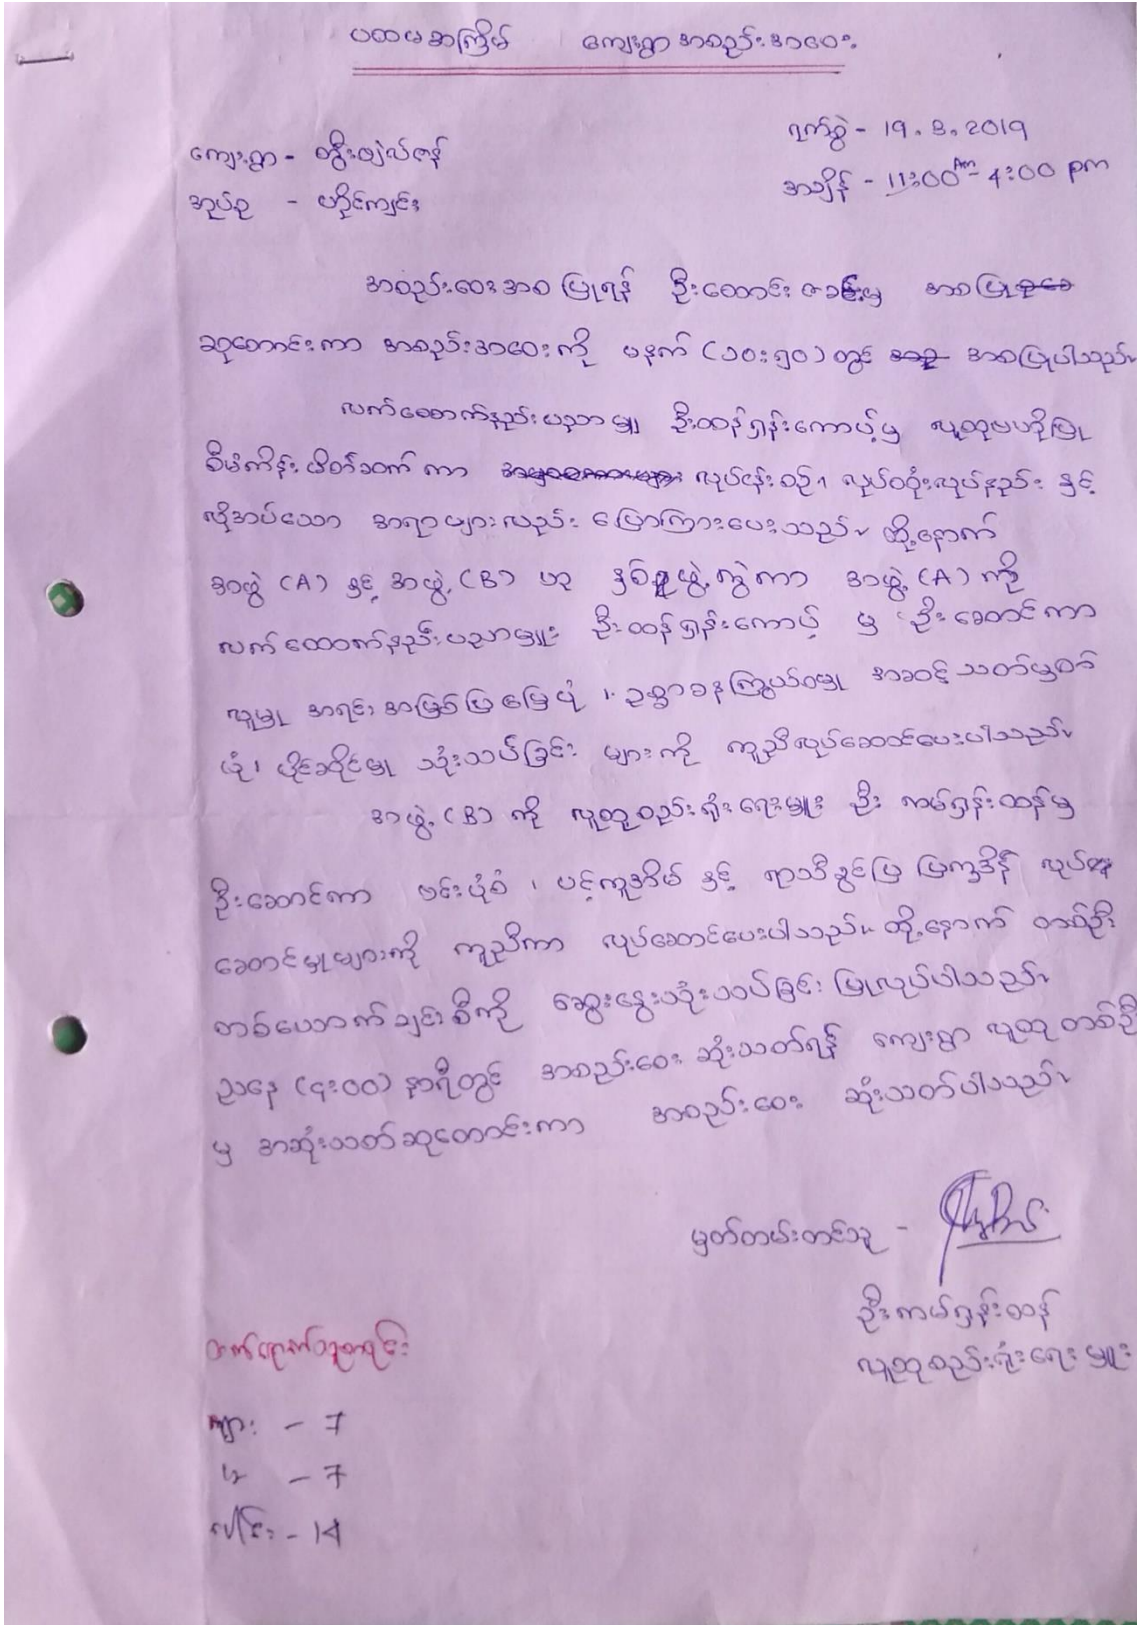 ပထမအကြိမ် ကျေးရွာအစည်းအဝေး
ရက်စွဲ - 19.8.2019
ကျေးရွာ - တွီးဗျဲလ်ဇန်
အချိန် - 11:00 Am - 4:00 pm
အုပ်စု - ဟိုင်ကျင်း
အစည်းဝေးအစပြုရန် ဦးထောင်းဇခင်းမှ အစပြု
ဆုတောင်းကာ အစည်းအဝေးကို မနက် (၁၀:၅၀) တွင် အစပြုပါသည်။
လက်ထောက်နည်းပညာမှူး ဦးထန်ရှန်းကောပ့်မှ လူထုဗဟိုပြု
စီမံကိန်း မိတ်ဆက်ကာ လုပ်ငန်းစဉ်၊ လုပ်ထုံးလုပ်နည်း နှင့်
လိုအပ်သော အရာများလည်း ပြောကြားပေးသည်။ ထို့နောက်
အဖွဲ့ (A) နှင့် အဖွဲ့ (B) ဟု နှစ်ဖွဲ့ကွဲကာ အဖွဲ့ (A) ကို
လက်ထောက်နည်းပညာမှူး ဦးထန်ရှန်းကောပ့် မှ ဦးဆောင်ကာ
လူမှု အရင်းအမြစ်ပြမြေပုံ ၊ ဥစ္စာဓနကြွယ်ဝမှု အဆင့်သတ်မှတ်
ပုံ၊ ပိုင်ဆိုင်မှု သုံးသပ်ခြင်း များကို ကူညီလုပ်ဆောင်ပေးပါသည်။
အဖွဲ့ (B) ကို လူထုစည်းရုံးရေးမှူး ဦး ကမ်ရှန်းထန်မှ
ဦးဆောင်ကာ ဗင်းပုံစံ ၊ ပင့်ကူအိမ် နှင့် ရာသီခွင်ပြ ပြက္ခဒိန် လုပ်
ဆောင်မှုများကို ကူညီကာ လုပ်ဆောင်ပေးပါသည်။ ထို့နောက် တစ်ဦး
တစ်ယောက်ချင်းစီကို ဆွေးနွေးသုံးသပ်ခြင်း ပြုလုပ်ပါသည်။
ညနေ (၄:၀၀) နာရီတွင် အစည်းဝေး ဆုံးသတ်ရန် ကျေးရွာ လူထုတစ်ဦး
မှ အဆုံးသတ်ဆုတောင်းကာ အစည်းဝေး ဆုံးသတ်ပါသည်။
မှတ်တမ်းတင်သူ -
ဦးကမ်ရှန်းထန်
လူထုစည်းရုံးရေးမှူး
တက်ရောက်သူစာရင်း
ကျား - 7
မ - 7
ပေါင်း - 14